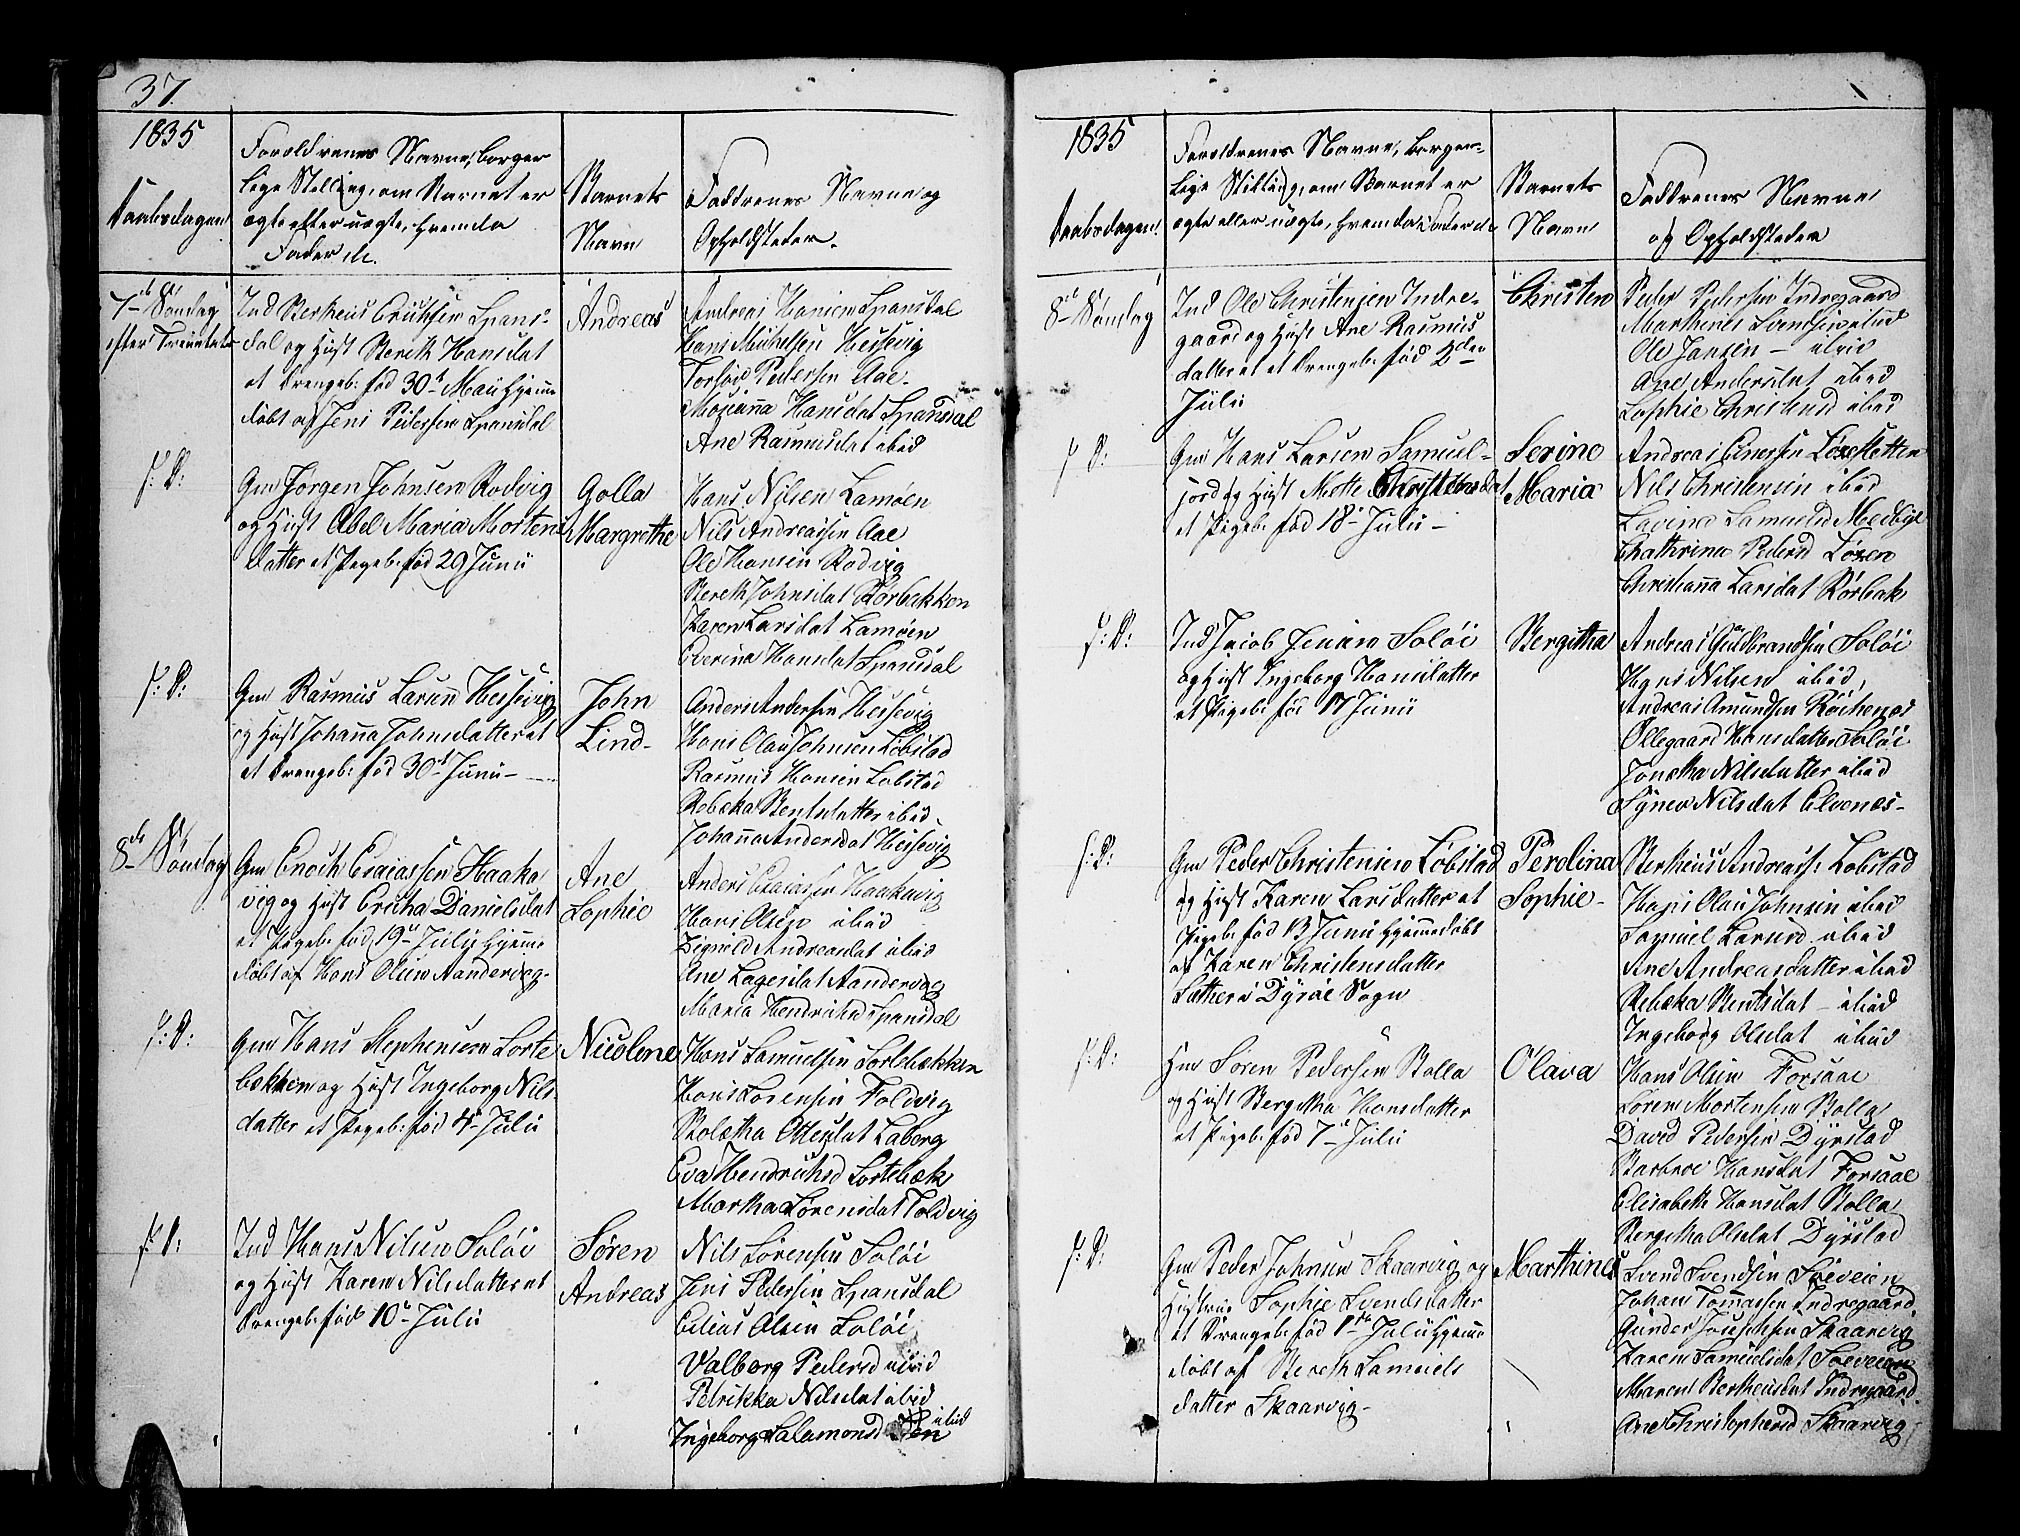 37.
1835
Daabsdagen
Forældrenes Navne, borger
lige Stilling, om Barnet er
ægte eller uægte, hvem da
Fader &c.
Barnets
Navn
Faddrenes Navne og
Opholdsteder.
7de Søndag
efter Trinitatis
Ind Berheus Erichsen Spans-
dal og Hust Bereth Hansdat
et Drengeb: fød 30te Maii hjemme
døbt af Jens Pedersen Spansdal
Andreas
Andreas Hansen Spansdal
Hans Michelsen Hessevig
Torlov Pedersen Aae
Mosianna Hansdat Spansdal
Ane Rasmusdat ibid
s: D:
Gm Jørgen Johnsen Rodvig
og Hust Abel Maria Mortens
datter et Pigeb: fød 29 Junii
Golla
Margrethe
Hans Nilsen Lamøen
Nils Andreassen Aae
Ole Hansen Rodvig
Bereth Johnsdat Rørbakken
Karen Larsdat Lamøen
Everina Hansdat Spansdal
s: D:
Gm Rasmus Larsen Hessevig
og Hust Johanna Johnsdatter et
et Drengeb: fød 30te Junii
John
Lind
Anders Andersen Hessevig
Hans Olau Johnsen Løbstad
Rasmus Hansen Løbstad
Rebæka Bentsdatter ibid
Johanna Andersdat Hessevig
8de Søndag
Gm Enoch Esaiassen Haaka
vig og Hust Ericha Danielsdat
et Pigeb: fød 19de July hjemme
døbt af Hans Olsen Aandervag
Ane
Sophie
Anders Esaiassen Haakavig
Hans Olsen ibid
Zignold Andreasdat ibid
Ane Lagesdat Aandervag
Maria Hendrichsd Spansdal
s: D:
Gm Hans Stephensen Sorte
bækken og Hust Ingeborg Nils
datter et Pigeb: fød 4de Julii
Nicoline
Hans Samuelsen Sortebækken
Hans Lorensen Foldvig
Rolætha Ottesdat Laberg
Eva Hendrichsd Sortebæk
Martha Lorensdat Foldvig
s: D:
Ind Hans Nilsen Soløi
og Hust Karen Nilsdatter et
Drengeb: fød 10de Julii
Søren
Andreas
Nils Sørensen Soløi
Jens Pedersen Spansdal
Elias Olsen Soløi
Valborg Pedersd ibid
Petrikka Nilsdat ibid
Ingeborg Salamonsd ibid
1835
Daabsdagen
Forældrenes Navne, borger-
lige Stilling, om Barnet er
ægte eller uægte, hvem da Fader &c
Barnets
Navn
Faddrenes Navne
og Opholdsteder
8de Søndag
Ind Ole Christensen Indre-
gaard og Hust Ane Rasmus
datter et et Drengeb: fød 2den
Julii
Christen
Peder Pedersen Indregaard
Marthines Svendsen ibid
Ole Jansen - ibid
Ane Andersdat ibid
Sophie Christensd ibid
s: D:
Gm Hans Larsen Samuel-
jord og Hust Mette Christensdat
et Pigeb: fød 18de Julii
Serine
Maria
Andreas Einersen Løresletten
Nils Christensen ibid
Lavina Samuelsd Medbye
Chathrina Pedersd Løren
Christianna Larsdat Rørbak
s: D:
Ind Jacob Jensen Soløi
og Hust Ingeborg Hansdatter
et Pigeb: fød 17 Junii
Bergitha
Andreas Guldbrandsen Soløi
Hans Nilsen ibid,
Andreas Amundsen Røkenes
Ollegaard Hansdatter Soløi
Jonetha Nilsdatter ibid
Synev Nilsdat Elvenæs
s: D:
Gm Peder Christensen Løbstad
og Hust Karen Larsdatter et
Pigeb: fød 13 Junii hjemmedøbt
af Karen Christensdatter
Sæther i Dyrøe Sogn
Perolina
Sophie
Berheus Andreass: Løbstad
Hans Olau Johnsen ibid
Samuel Larsen ibid
Ane Andreasdatter ibid
Rebæka Bentsdat - ibid
Ingeborg Olsdat ibid
s: D:
Hm Søren Pedersen Bolla
og Hust Bergetha Hansdatter
et Pigeb: fød 7de Julii
Olava
Hans Olsen Forsaae
Soren Mortensen Bolla
David Pedersen Dyrstad
Barbroe Hansdat Forsaae
Elisabeth Hansdat Bolla
Bergetha Olsdat Dyrstad
s: D:
Gm Peder Johnsen Skaarvig og
Hustrue Sophie Svendsdatter
et Drengeb: fød 1ste Julii hjemme
døbt af Bereth Samuels
datter Skaarvig
Marthines
Svend Svendsen Søeveien
Johan Tomassen Indregaard
Gunder Josephsen Skaarvig
Karen Samuelsdat Søeveien
Maren Berheusdat Indregaard
Ane Christophersd Skaarvig